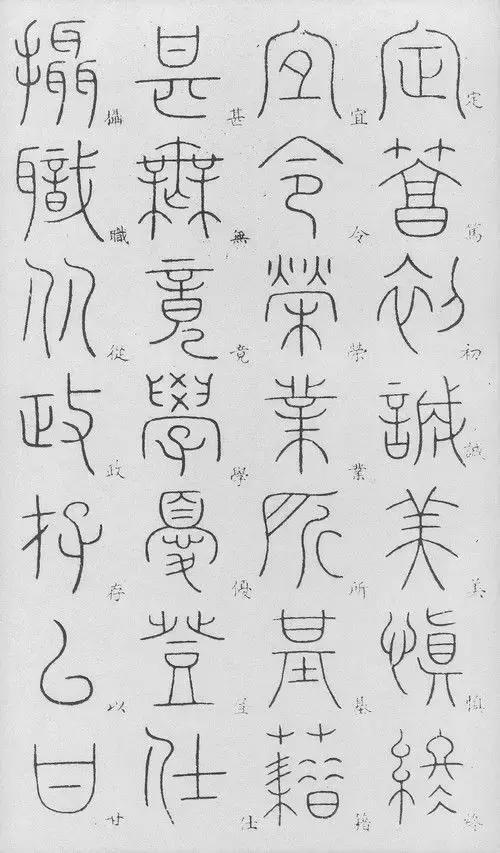 定篤初誠美慎終
宜令榮業所基藉
甚無竟學優登仕
攝職從政存以甘